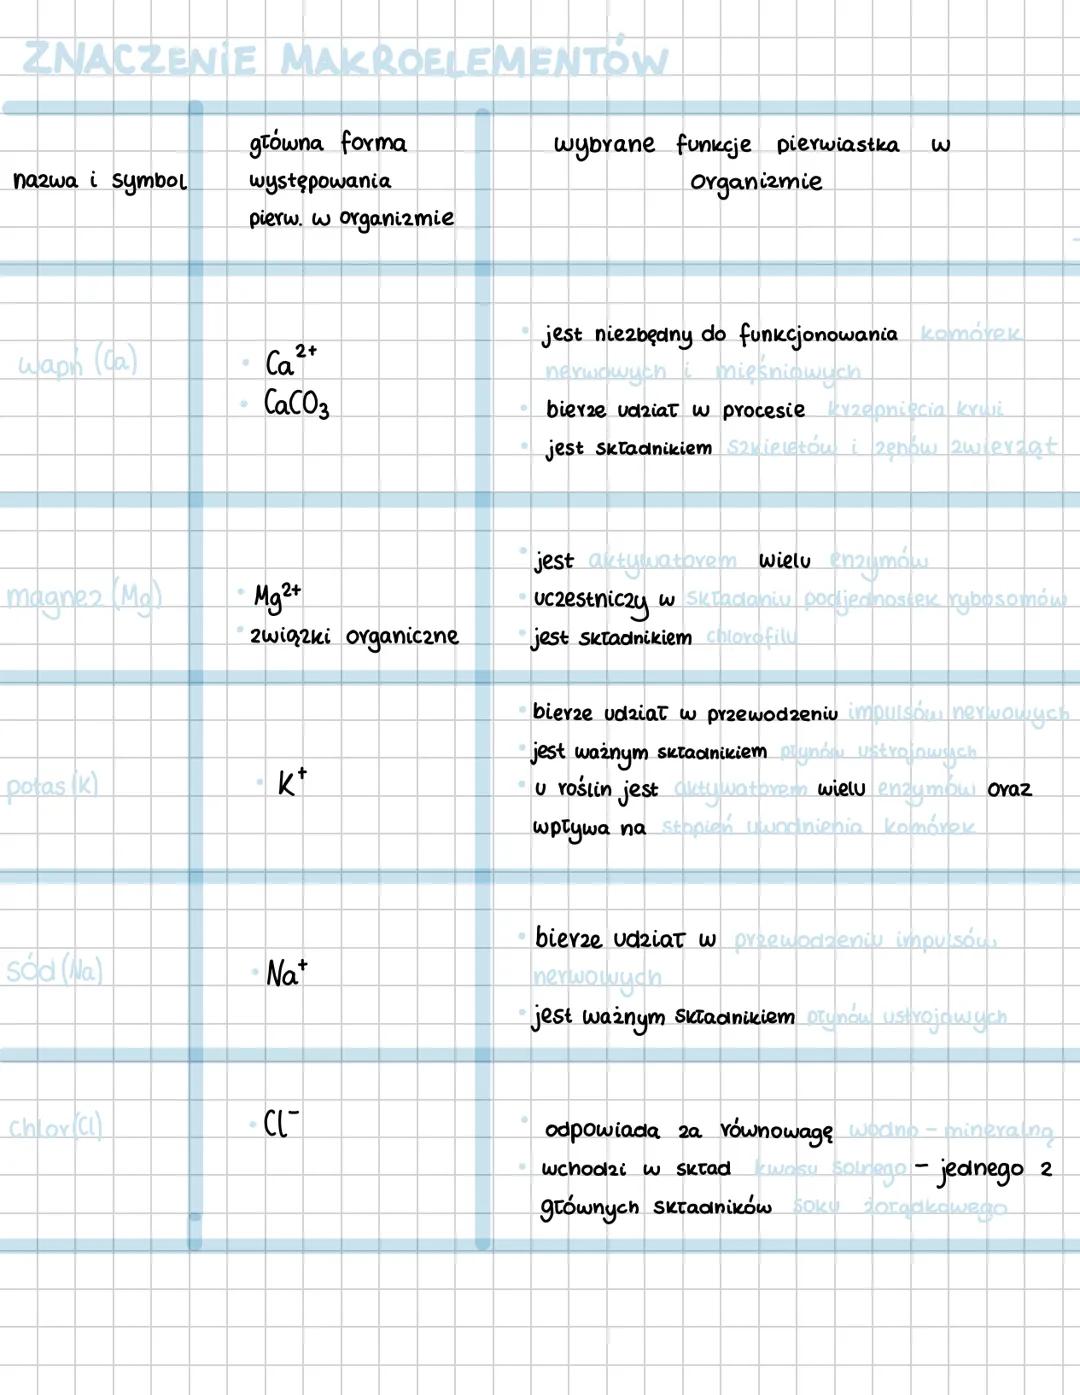 ZNACZENIE MAKROELEMENTÓW
nazwa i symbol
główna forma
występowania
pierw. w organizmie
wybrane funkcje pierwiastka w
organizmie
wapń (Ca)
• Ca²⁺
• CaCO₃
• jest niezbędny do funkcjonowania komórek
nerwowych i mięśniowych
• bierze udział w procesie krzepnięcia krwi
• jest składnikiem szkieletów i zębów zwierząt
magnez (Mg)
• Mg²⁺
• związki organiczne
• jest aktywatorem wielu enzymów
• uczestniczy w składaniu podjednostek rybosomów
• jest składnikiem chlorofilu
potas (K)
• K⁺
• bierze udział w przewodzeniu impulsów nerwowych
• jest ważnym składnikiem płynów ustrojowych
• u roślin jest aktywatorem wielu enzymów oraz
wpływa na stopień uwodnienia komórek
sód (Na)
• Na⁺
• bierze udział w przewodzeniu impulsów
nerwowych
• jest ważnym składnikiem płynów ustrojowych
chlor (Cl)
• Cl⁻
• odpowiada za równowagę wodno - mineralną
• wchodzi w skład kwasu solnego - jednego z
głównych składników soku żołądkowego